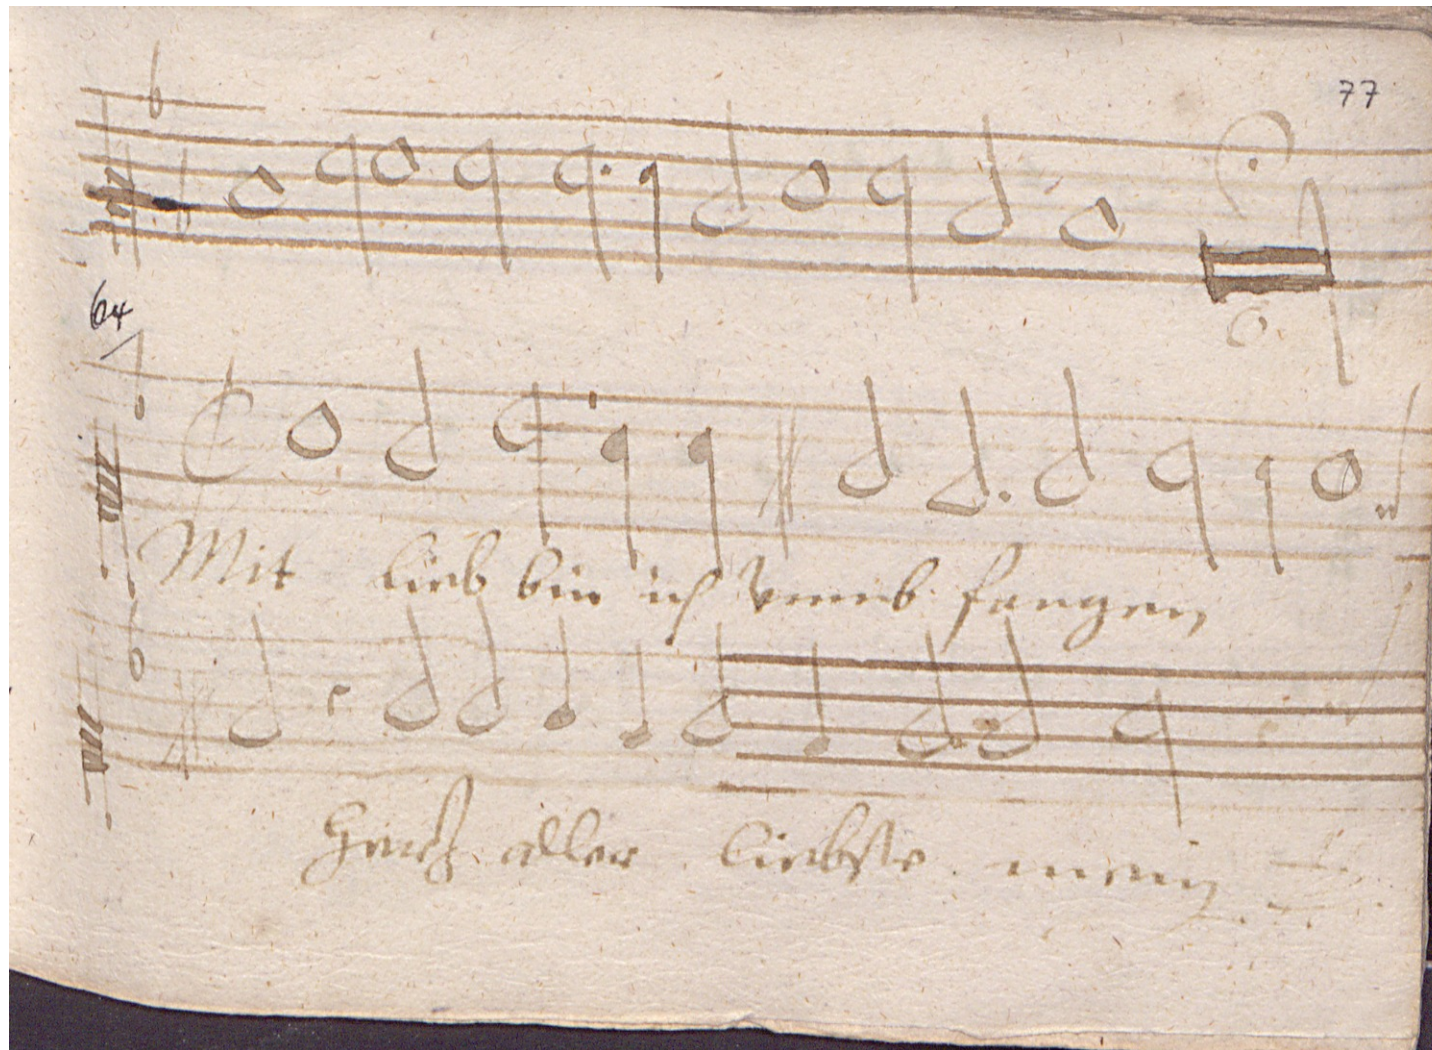 77
64
Mit lieb bin ich vmmb fangen
Hertz aller liebste mein